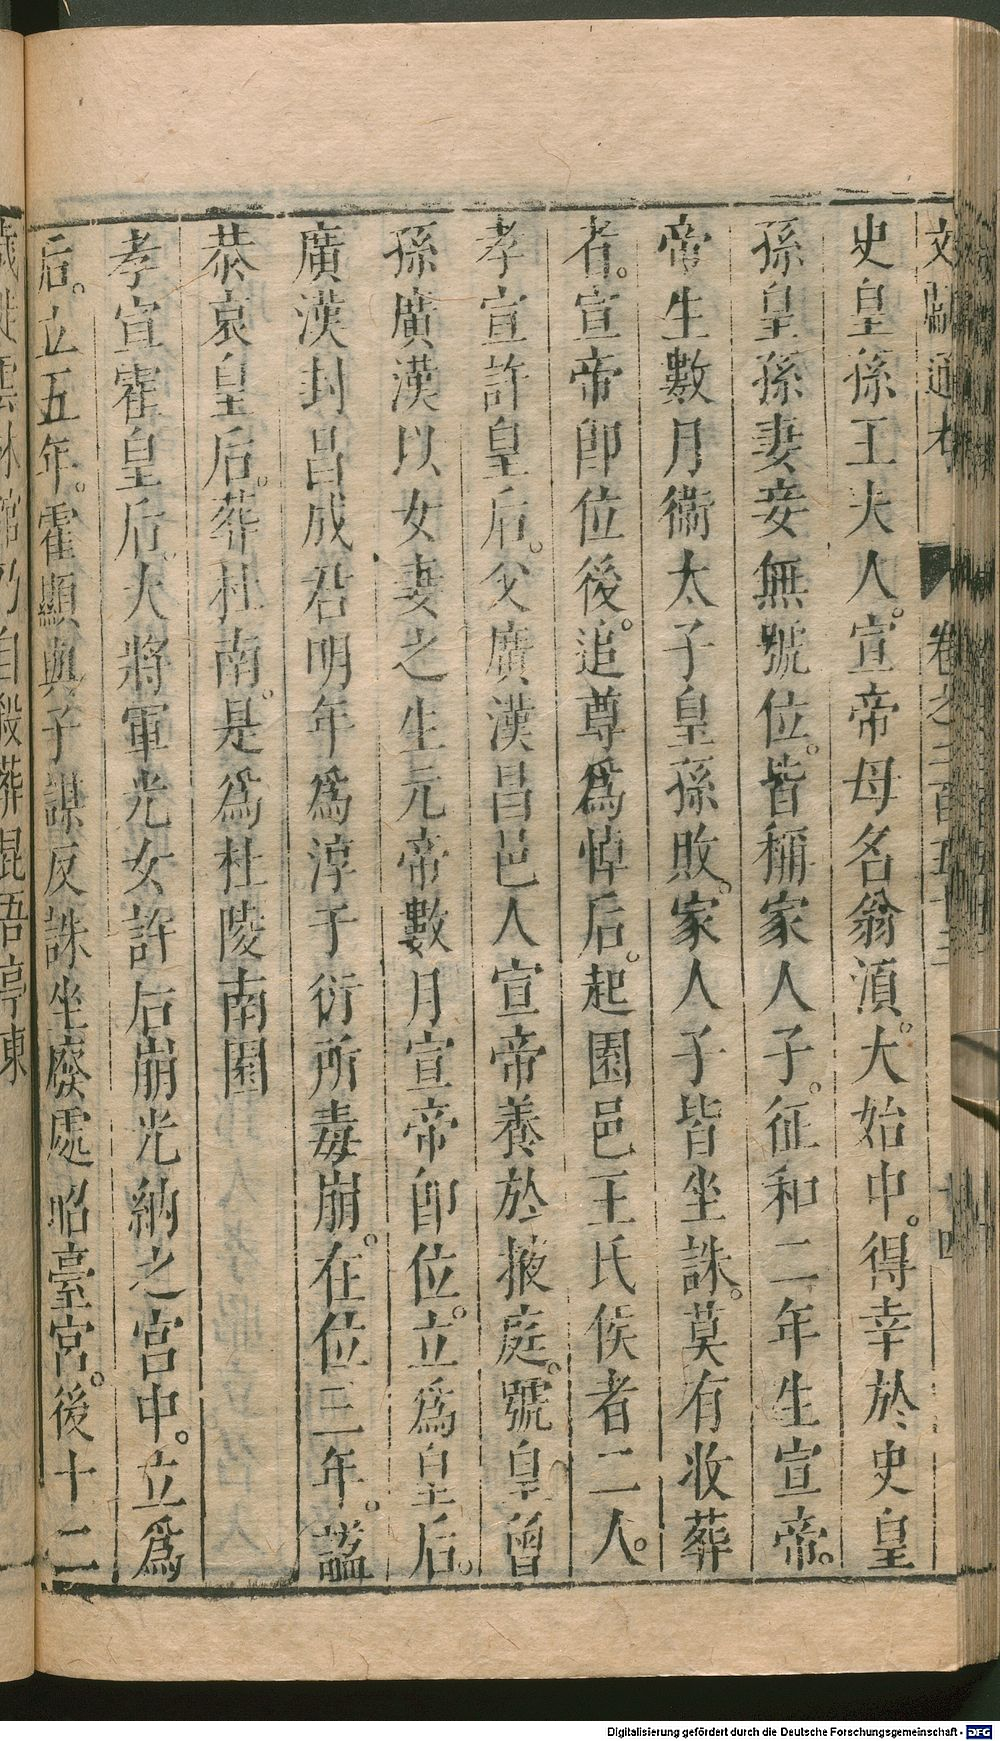 文獻通考 卷之二百五十三 十四
史皇孫王夫人。宣帝母名翁湏。大始中。得幸於史皇
孫皇孫妻妾無號位。皆稱家人子。征和二年生宣帝。
帝生數月衞太子皇孫敗。家人子皆坐誅。莫有收葬
者。宣帝卽位後。追尊爲悼后。起園邑王氏侯者二人。
孝宣許皇后。父廣漢昌邑人宣帝養於掖庭。號皇曾
孫廣漢以女妻之生元帝數月宣帝卽位。立爲皇后。
廣漢封昌成君明年爲淳于衍所毒崩。在位三年。謚
恭哀皇后。葬杜南。是爲杜陵南園
孝宣霍皇后。大將軍光女許后崩光納之宮中。立爲
后。立五年。霍顯與子謀反誅坐廢處昭臺宮。後十二
歲徙雲林館乃自殺葬昆吾亭東
Digitalisierung gefördert durch die Deutsche Forschungsgemeinschaft - DFG